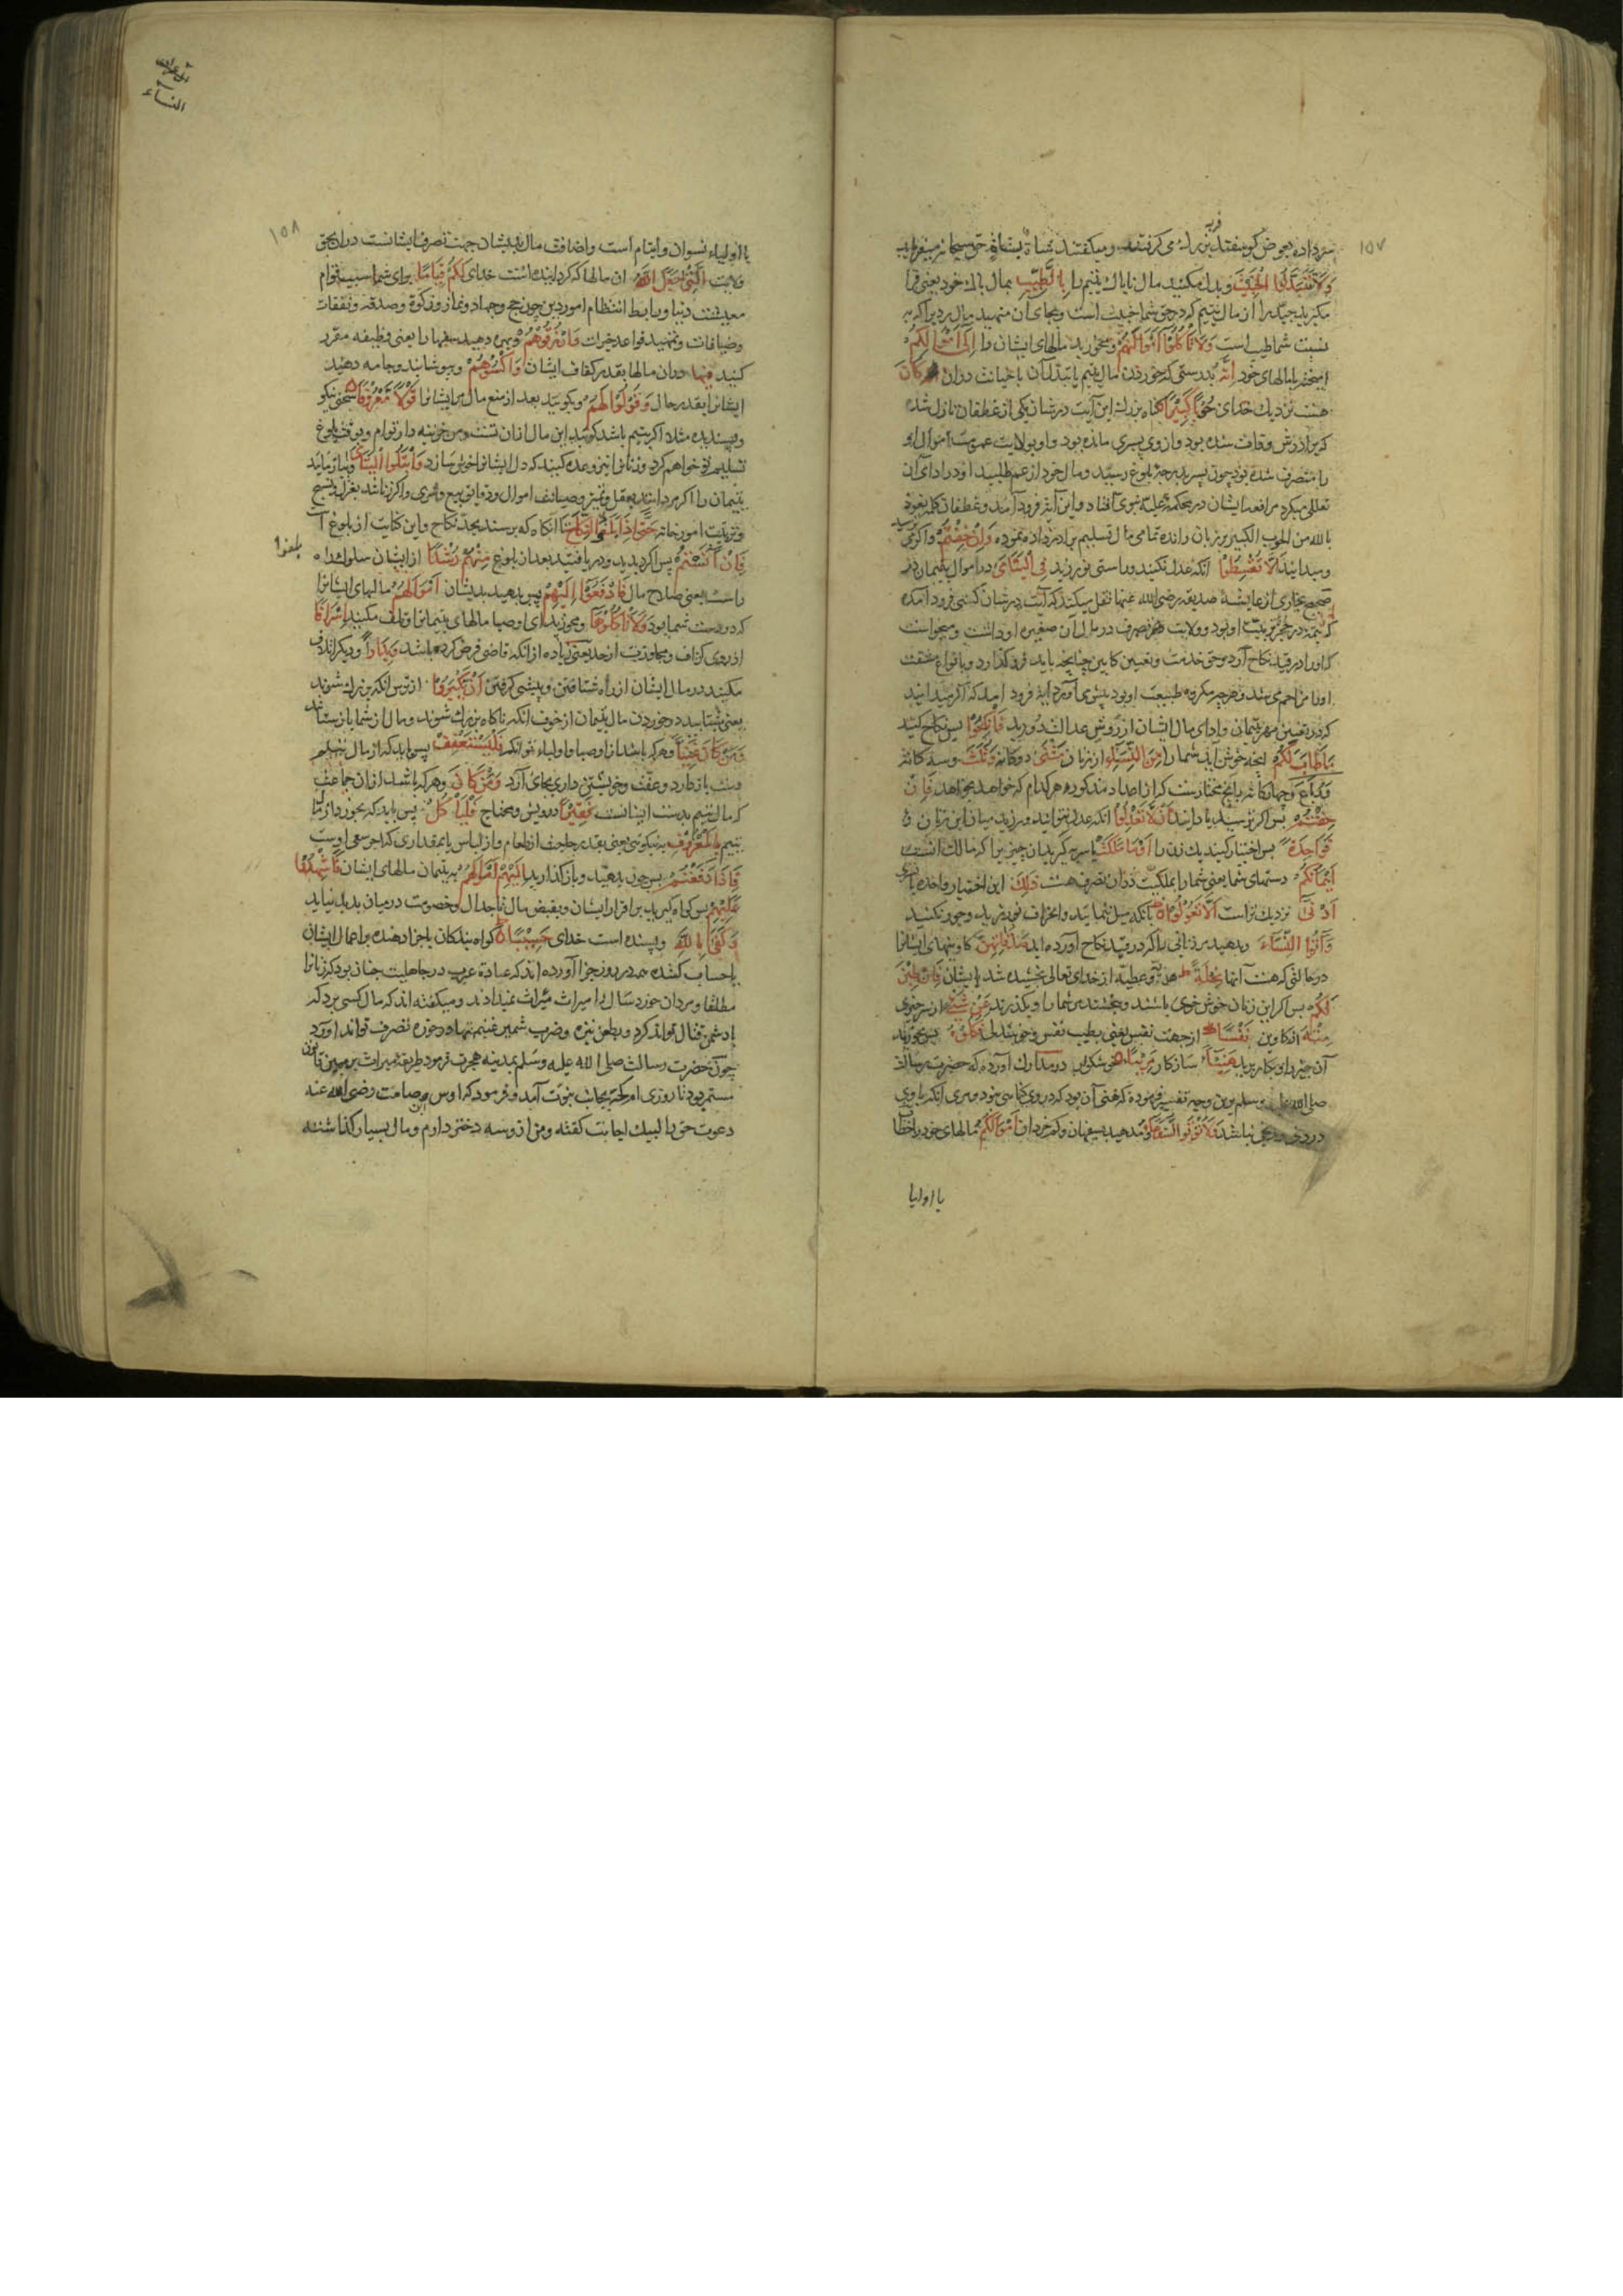 ۱۵۷
فربه
میداده بعوض گوسفند بزرک می‌گرفتند و میگفتند شاة بشاة حق سبحانه میفرماید
وَلَا تَتَبَدَّلُوا الْخَبِيثَ و بدل مکنید مال ناپاک یتیم را بِالطَّيِّبِ بمال پاک خود یعنی فرا
مگیرید جید را از مال یتیم که در حق شما خبیث است و بجای آن منهید مال ردی را که بر
نسبت شما طیب است وَلَا تَأْكُلُوا أَمْوَالَهُمْ و مخورید مالهای ایشان را إِلَى أَمْوَالِكُمْ
امیخته با مالهای خود إِنَّهُ بدرستی که خوردن مال یتیم یا تبدل آن یا خیانت در آن كَانَ
هست نزدیک خدای حُوبًا كَبِيرًا گناه بزرک این آیت در شان یکی از غطفان نازل شده
که برادرش وفات شده بود و از وی پسری مانده بود و او بولایت عمومت اموال او
را متصرف شده بود چون پسر بدرجه بلوغ رسید و مال خود از عم طلبید او در ادای آن
تعلل میکرد مرافعه ایشان در محکمه علیه نبوی افتاد و این آیه فرود آمد و غطفان کلمه نعوذ
بالله من الحوب الکبیر بر زبان رانده تمامی مال تسلیم برادرزاده نموده وَإِنْ خِفْتُمْ و اگر ترسید
و میدانید أَلَّا تُقْسِطُوا آنکه عدل نکنید و راستی نورزید فِي الْيَتَامَى در اموال یتیمان در
صحیح بخاری از عایشه صدیقه رضی الله عنها نقل میکند که آیت در شان کسی فرود آمده
که یتیمه در حجر تربیت او بود و ولایت تصرف در مال آن صغیره او داشت و میخواست
که او را در قید نکاح آرد و حق خدمت و تعیین کابین چنانچه باید فرو گذارد و بانواع مختلف
او را مزاحم می‌شد و هرچه مکروه طبیعت او بود پیش می‌آورد این آیه فرود آمد که اگر میدانید
که در تعیین مهر یتیمان و ادای مال ایشان از روش عدالت دورید فَانْكِحُوا پس نکاح کنید
مَا طَابَ لَكُمْ آنچه خوش آید شما را مِنَ النِّسَاءِ از زنان مَثْنَى دوگانه وَثُلَاثَ و سه گانه
وَرُبَاعَ و چهارگانه ناکح مختارست که از اعداد مذکوره هر کدام که خواهد بخواهد فَإِنْ
خِفْتُمْ پس اگر ترسید یا دانید أَلَّا تَعْدِلُوا آنکه عدل نتوانید ورزید میان این زنان
فَوَاحِدَةً پس اختیار کنید یک زن را أَوْ مَا مَلَكَتْ یا سریه گیرید آن چیزی را که مالک آنست
أَيْمَانُكُمْ دستهای شما یعنی شما را بملکیت در آن تصرف هست ذَلِكَ این اختیار واحده یا تسری
أَدْنَى نزدیک تر است أَلَّا تَعُولُوا بآنکه میل ننمائید و انحراف نورزید و جور نکنید
وَآتُوا النِّسَاءَ و بدهید مر زنانی را که در قید نکاح آورده اید صَدُقَاتِهِنَّ کاوینهای ایشانرا
در حالتی که هست آنها نِحْلَةً هدیه و عطیه از خدای تعالی بخشیده شد بایشان فَإِنْ طِبْنَ
لَكُمْ پس اگر این زنان خوش خوی باشند و بخشند مر شما را و بگذرند عَنْ شَيْءٍ از سر چیزی
مِنْهُ از کاوین نَفْسًا از جهت نفس یعنی بطیب نفس و خوشدلی فَكُلُوهُ پس بخورید
آن چیز را و بکار برید هَنِيئًا سازکار مَرِيئًا خوشکوار در مدارک آورده که حضرت رسالت
صلی الله علیه وسلم برین وجه تفسیر فرموده که هنی آن بود که در وی گناهی نبود و مری آنکه با وی
دردی و رنجی نباشد وَلَا تُؤْتُوا السُّفَهَاءَ و مدهید بسفیهان و کم خردان أَمْوَالَكُمُ مالهای خود را خطاب
یا اولیا
النساء
۱۵۸
با اولیاء نسوان و ایتام است و اضافت مال بدیشان جهت تصرف ایشانست در آن بحق
ولایت الَّتِي جَعَلَ اللَّهُ آن مالها که گردانیده است خدای لَكُمْ قِيَامًا برای شما سبب قوام
معیشت دنیا و رابط انتظام امور دین چون حج و جهاد و نماز و زکوة و صدقه و نفقات
و ضیافات و تمهید قواعد خیرات وَارْزُقُوهُمْ و روزی دهید سفها را یعنی وظیفه مقرر
کنید فِيهَا در آن مالها بقدر کفاف ایشان وَاكْسُوهُمْ و بپوشانید و جامه دهید
ایشانرا بقدر حال وَقُولُوا لَهُمْ و بگویید بعد از منع مال مر ایشانرا قَوْلًا مَعْرُوفًا سخنی نیکو
و پسندیده مثلا اگر یتیم باشد گویید این مال از آن تست و من خزینه دار توام و بوقت بلوغ
تسلیم تو خواهم کرد و زنانرا نیز وعده کنید که دل ایشانرا خوش سازد وَابْتَلُوا الْيَتَامَى و بیازمایید
یتیمان را اگر مردانند بعقل و تمیز و صیانت اموال و دقایق بیع و شری و اگر زنانند بغزل و نسج
و ترتیب امور خانه حَتَّى إِذَا بَلَغُوا النِّكَاحَ تا آنگاه که برسند بحد نکاح و این کنایت از بلوغ است
بلغوا
فَإِنْ آنَسْتُمْ پس اگر بدیدید و دریافتید بعد از بلوغ مِنْهُمْ رُشْدًا از ایشان سلوک راه
راست یعنی صلاح مال فَادْفَعُوا إِلَيْهِمْ پس بدهید بدیشان أَمْوَالَهُمْ مالهای ایشانرا
که در دست شما بود وَلَا تَأْكُلُوهَا و مخورید ای اوصیا مالهای یتیمانرا و تلف مکنید إِسْرَافًا
از روی گزاف و مجاوزت از حد یعنی زیاده از آنکه قاضی فرض کرده باشد وَبِدَارًا و دیگر اتلاف
مکنید در مال ایشان از راه شتافتن و پیشی گرفتن أَنْ يَكْبَرُوا از ترس آنکه بزرک شوند
یعنی شتابید در خوردن مال یتیمان از خوف آنکه ناگاه بزرک شوند و مال از شما باز ستانند
وَمَنْ كَانَ غَنِيًّا و هر که باشد از اوصیا و اولیاء توانگر فَلْيَسْتَعْفِفْ پس باید که از مال یتیم
دست باز دارد و عفت و خویشتن داری بجای آرد وَمَنْ كَانَ و هر که باشد از آن جماعت
که مال یتیم بدست ایشانست فَقِيرًا درویش و محتاج فَلْيَأْكُلْ پس باید که بخورد از مال
یتیم بِالْمَعْرُوفِ به نیکوئی یعنی بقدر حاجت از طعام و از لباس یا بمقداری که اجر سعی اوست
فَإِذَا دَفَعْتُمْ پس چون بدهید و باز گذارید إِلَيْهِمْ أَمْوَالَهُمْ به یتیمان مالهای ایشان فَأَشْهِدُوا
عَلَيْهِمْ پس گواه گیرید بر اقرار ایشان و بقبض مال تا جدال و خصومت در میان پدید نیاید
وَكَفَى بِاللَّهِ و بسنده است خدای حَسِيبًا گواه بندگان یا جزا دهنده بر اعمال ایشان
یا حساب کننده همه در روز جزا آورده اند که عادة عرب در جاهلیت چنان بود که زنانرا
مطلقا و مردان خورد سال را میراث نمیدادند و میگفته اند که مال کسی برد که
با دشمن قتال تواند کرد و بطعن نیزه و ضرب شمشیر غنیمتها در حوزه تصرف تواند آورد
چون حضرت رسالت صلی الله علیه وسلم بمدینه هجرت فرمود طریقه میراث برین قانون
مستمر بود تا روزی ام کحه بجناب نبوت آمد و فرمود که اوس بن صامت رضی الله عنه
دعوت حق را لبیک اجابت گفته و من از وسه دختر دارم و مال بسیار گذاشته